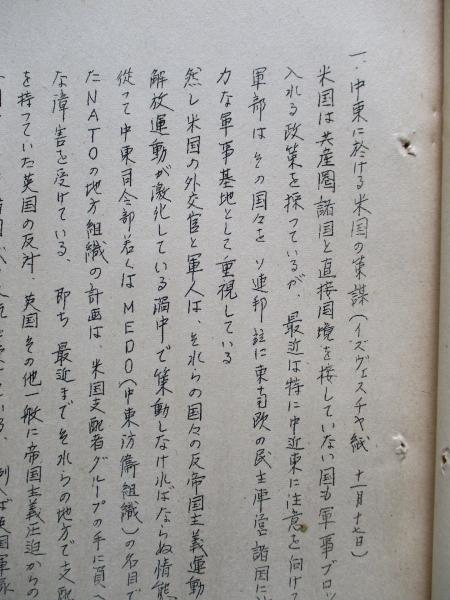 一、中東に於ける米国の策謀(イズヴェスチヤ紙 十一月十七日)
米国は共産圏諸国と直接国境を接していない国も軍事ブロッ
入れる政策を採っているが、最近は特に中近東に注意を向けて
軍部はその国々をソ連邦並に東南欧の民主陣営諸国に
力な軍事基地として重視している
然し米国の外交官と軍人は、それらの国々の反帝国主義運動
解放運動が激化している渦中で策動しなければならぬ情態
従って中東司令部若くはMEDO(中東防衛組織)の名目で
たNATOの地方組織の計画は、米国支配者グループの手に負へ
な障害を受けている、即ち 最近までそれらの地方で支配
を持っていた英国の反対、英国その他一般に帝国主義圧迫からの
ている、例へば英国軍隊